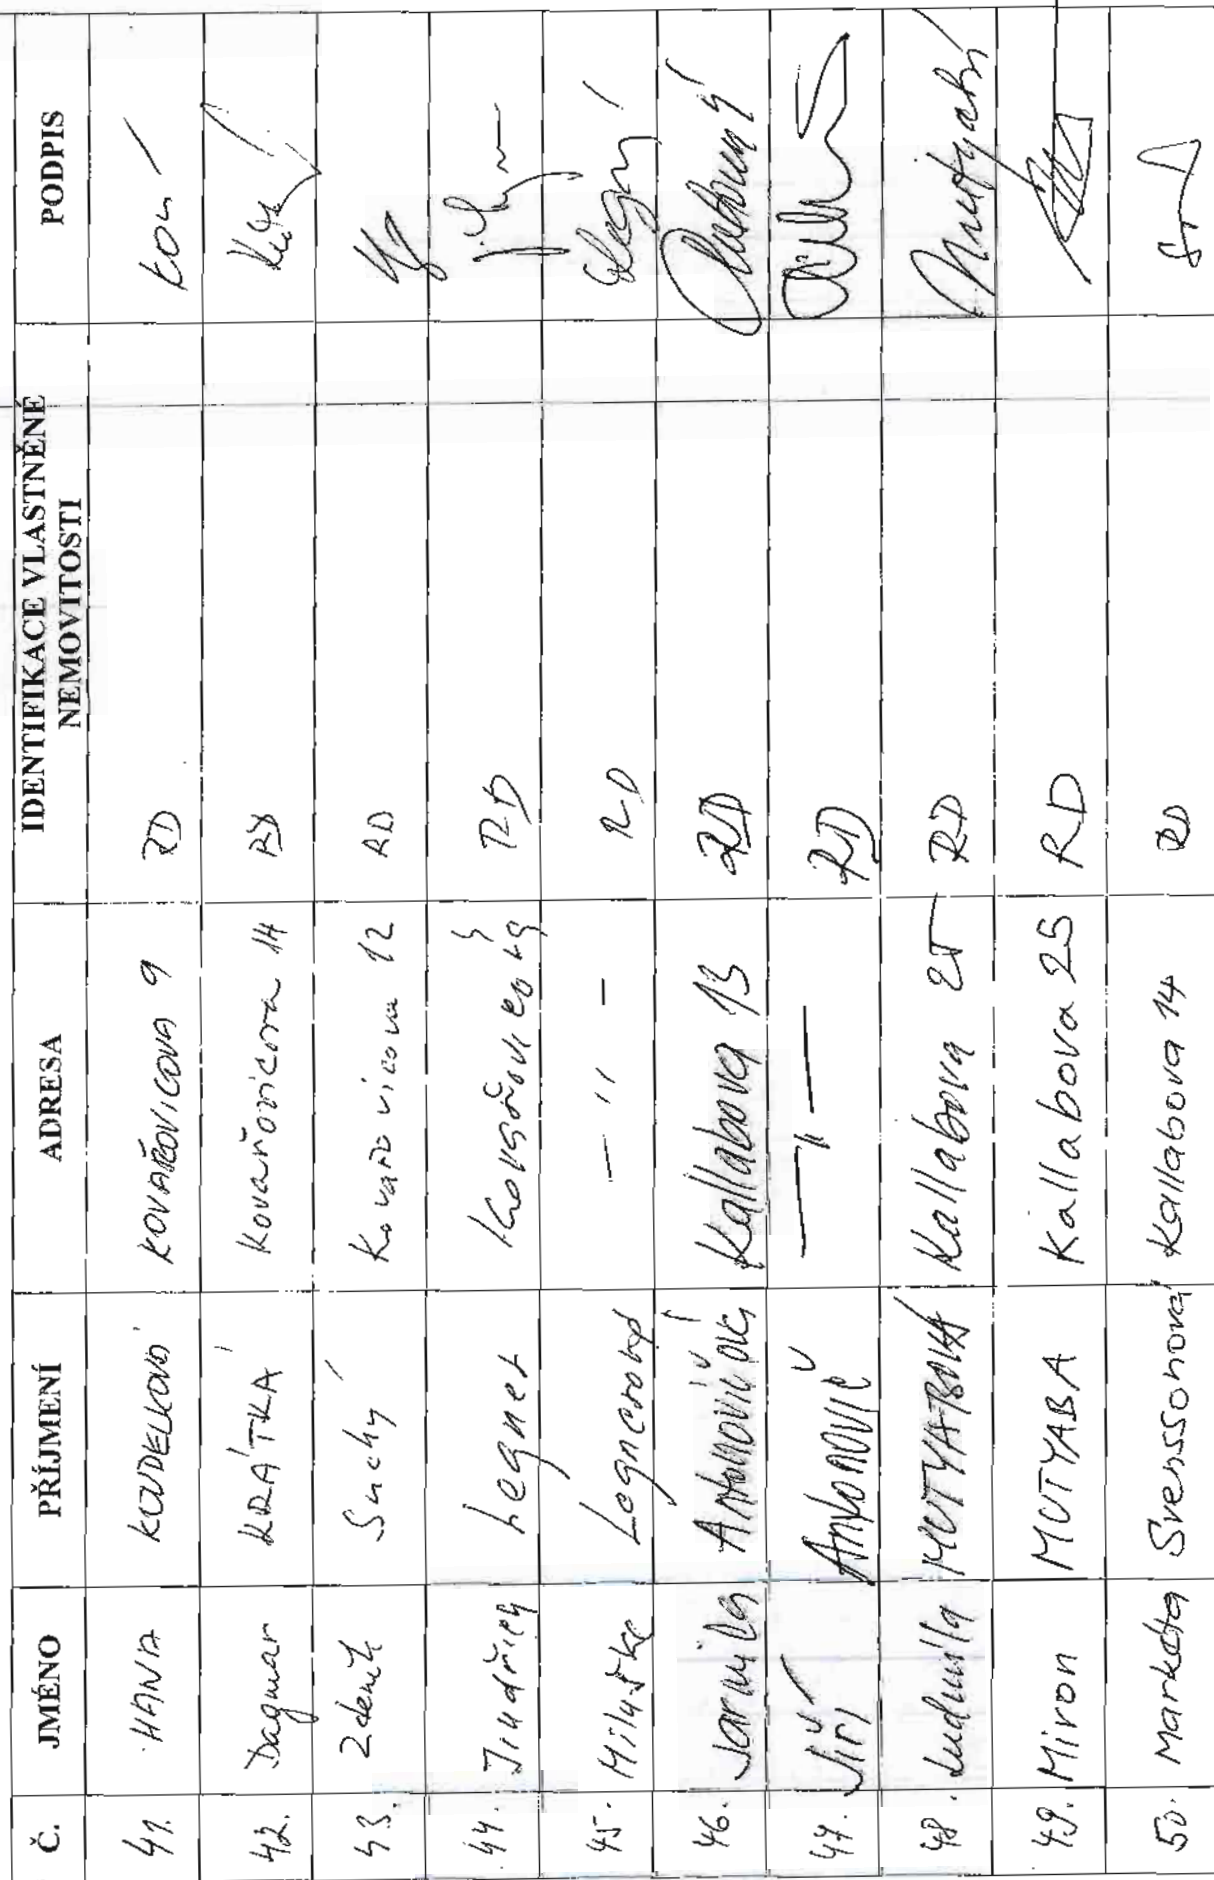 Č. JMÉNO PŘÍJMENÍ ADRESA IDENTIFIKACE VLASTNĚNÉ NEMOVITOSTI PODPIS
41. HANA KOUDELKOVÁ KOVAŘOVICOVA 9 RD
42. Dagmar KRÁTKÁ Kovařovicova 14 RD
43. Zdeněk Suchý Kovařovicova 12 RD
44. Jindřich Legner Kovařovicova RD
45. Miluška Legnerová - " - RD
46. Jarmila Antonovičová Kallabova 13 RD
47. Jiří Antonovič - " - RD
48. Ludmila MUTYABOVÁ Kallabova 25 RD
49. Miron MUTYABA Kallabova 25 RD
50. Markéta Svenssonová Kallabova 14 RD